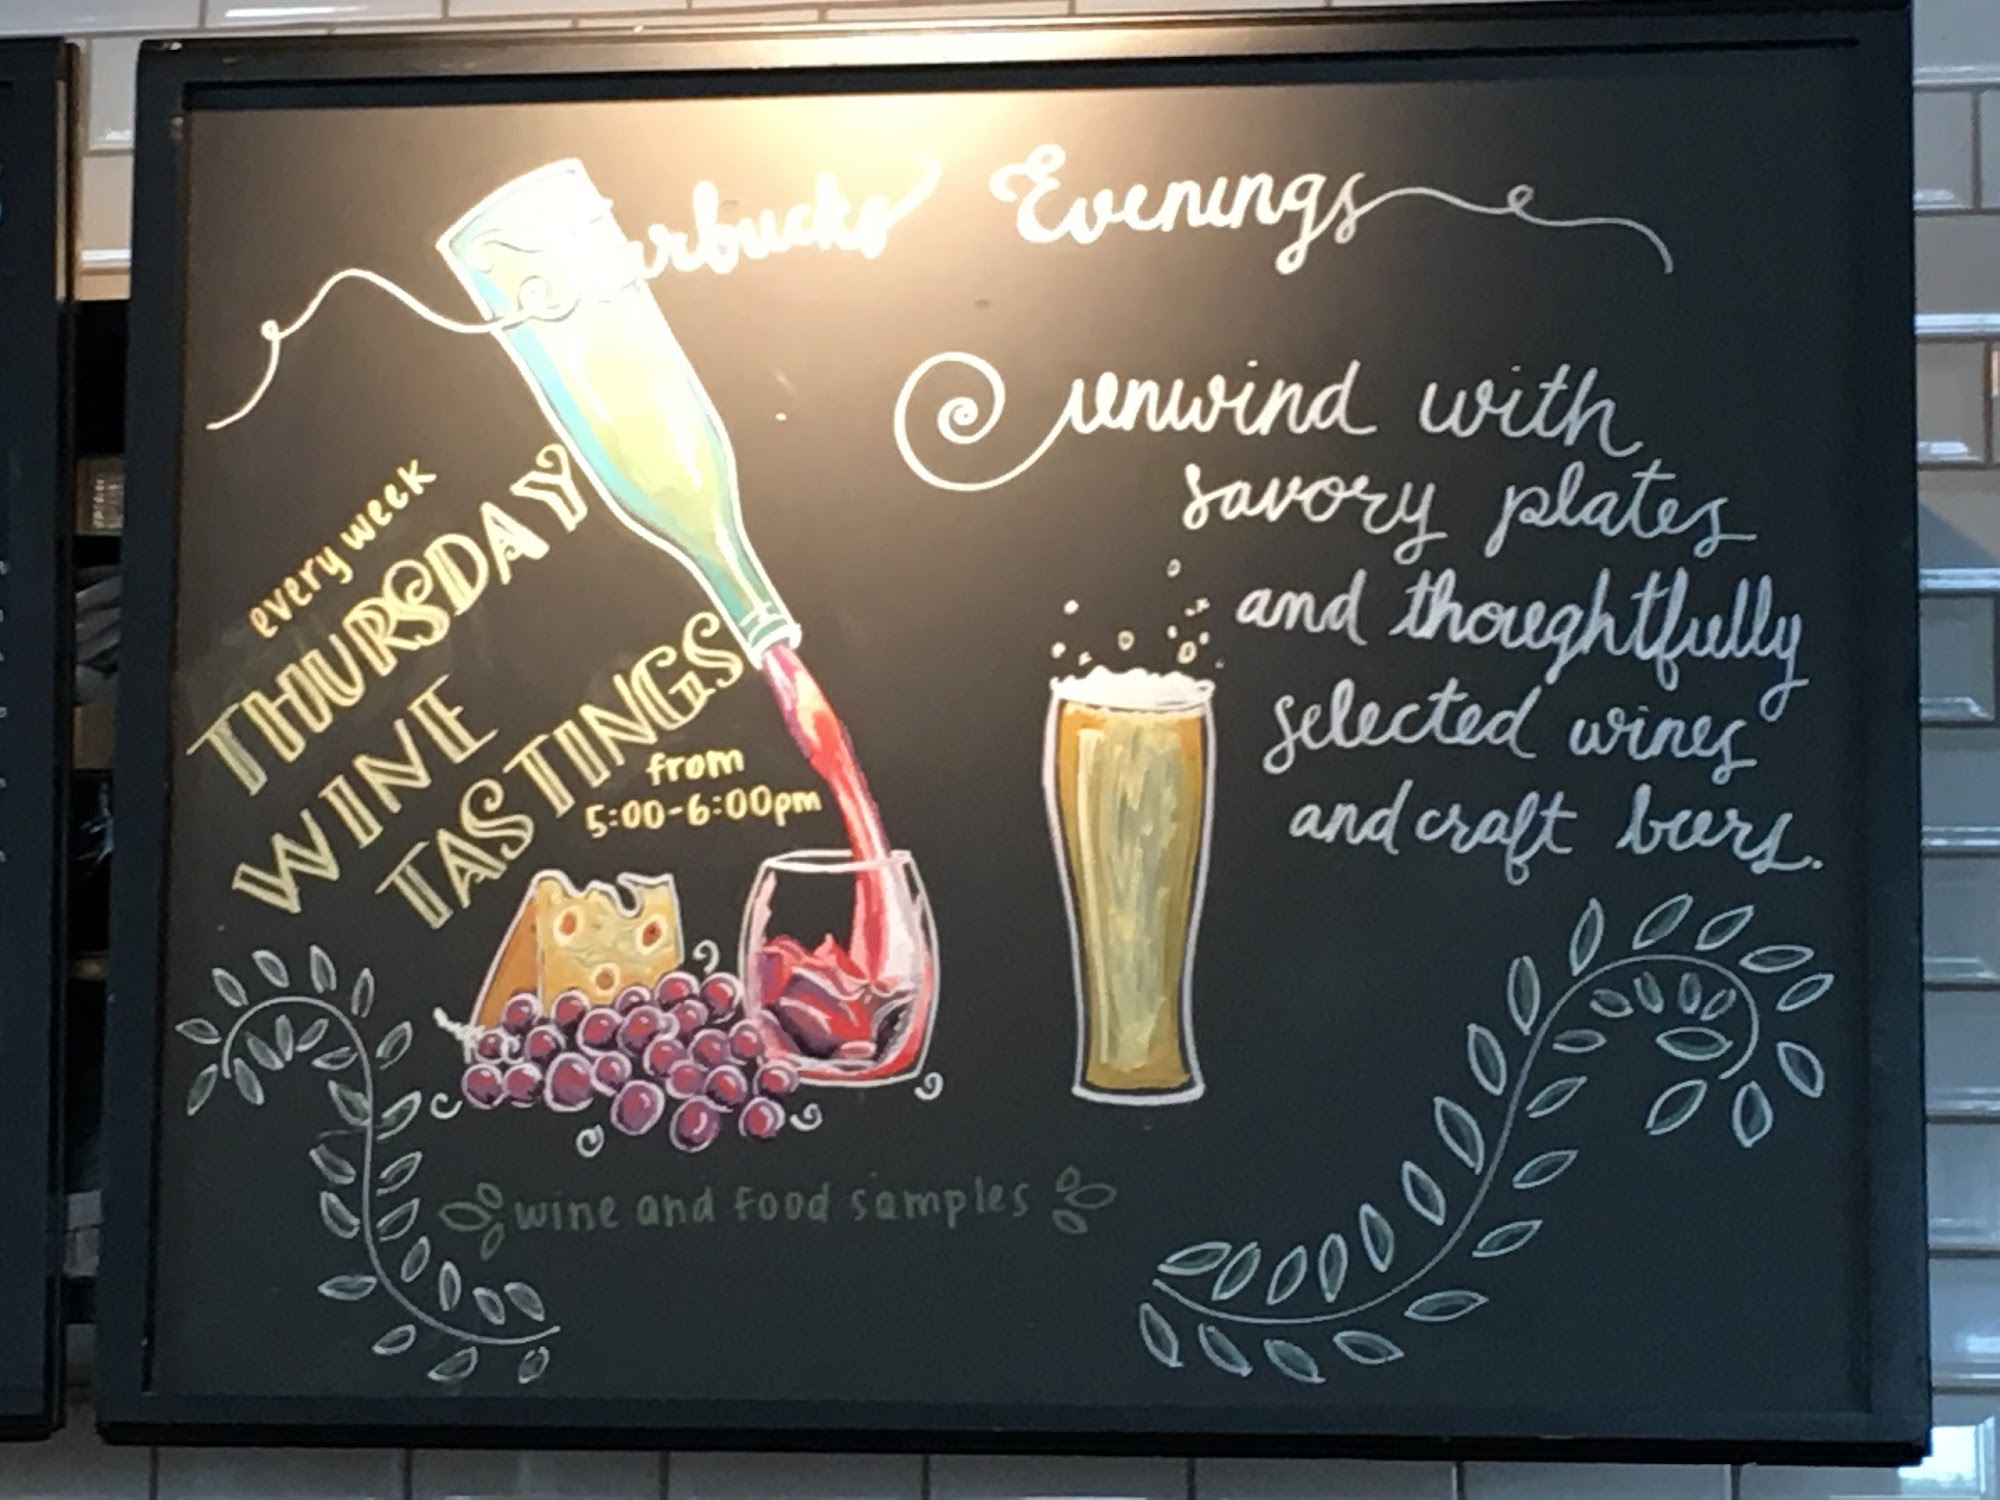 Starbucks Evenings
every week
THURSDAY
WINE
TASTINGS
from
5:00-6:00pm
unwind with
savory plates
and thoughtfully
selected wines
and craft beers.
wine and food samples